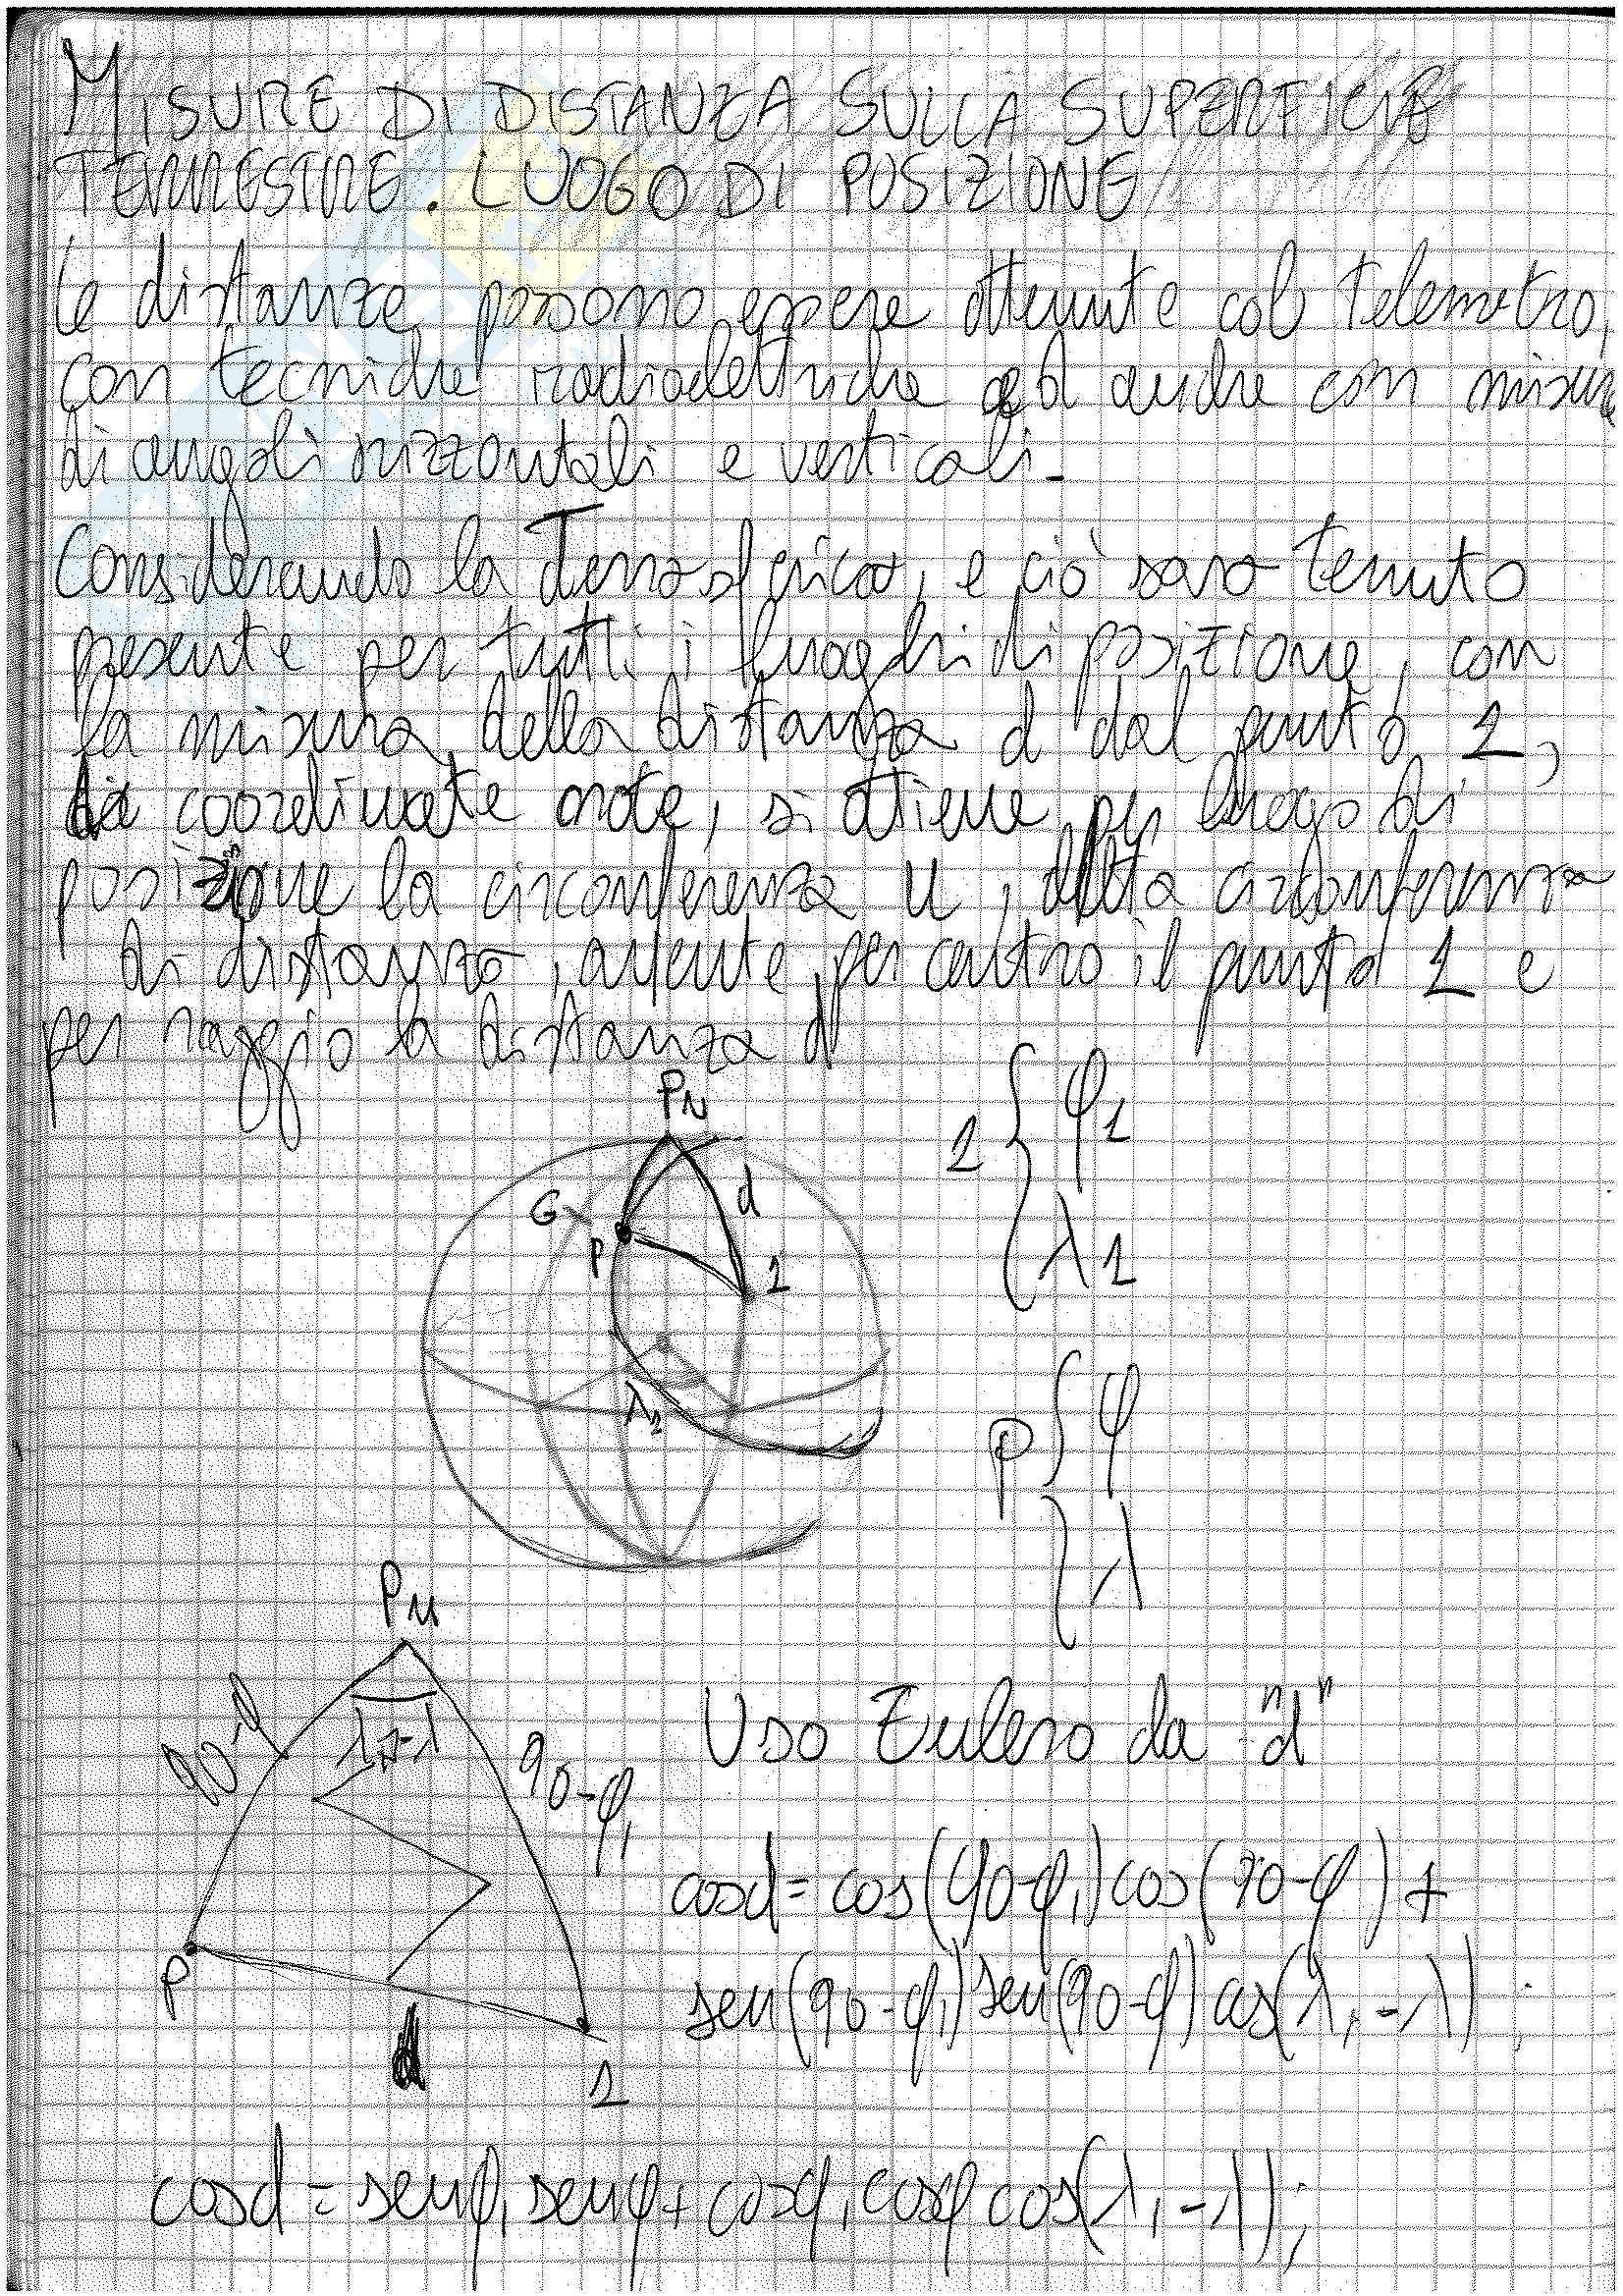 MISURE DI DISTANZA SULLA SUPERFICIE
TERRESTRE. LUOGO DI POSIZIONE
Le distanze possono essere ottenute col telemetro,
con tecniche radioelettriche ed anche con misure
di angoli orizzontali e verticali.
Considerando la Terra sferica, e ciò sarà tenuto
presente per tutti i luoghi di posizione, con
la misura della distanza d dal punto 1,
di coordinate note, si ottiene per luogo di
posizione la circonferenza u, detta circonferenza
di distanza, avente per centro il punto 1 e
per raggio la distanza d
PN
1 { φ1
λ1
G
d
P
1
λ2
P { φ
λ
PN
90-φ
λ1-λ
90-φ1
Uso Eulero da "d"
cosd = cos(90-φ1)cos(90-φ)+
sen(90-φ1)sen(90-φ)cos(λ1-λ);
P
d
1
cosd = senφ1senφ+cosφ1cosφcos(λ1-λ);